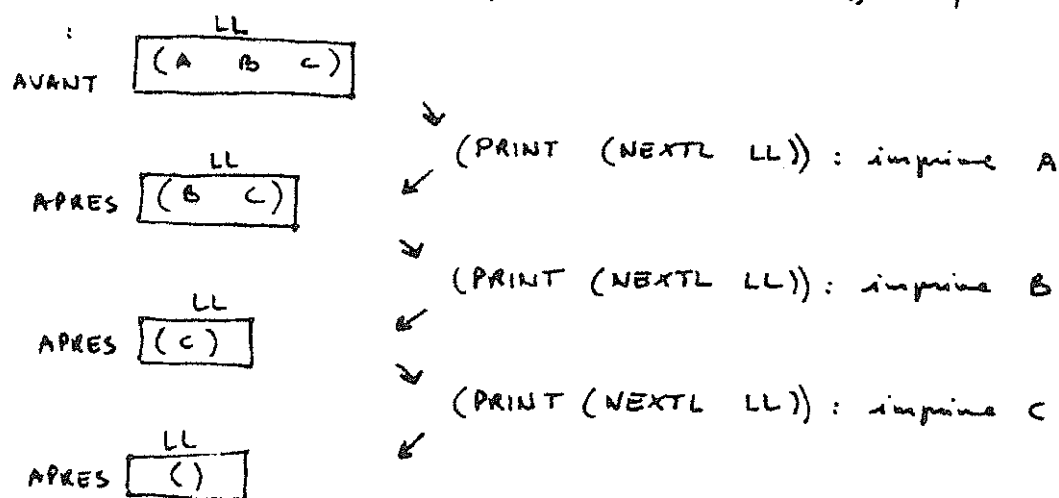 :
LL
AVANT (A B C)
(PRINT (NEXTL LL)) : imprime A
LL
APRES (B C)
(PRINT (NEXTL LL)) : imprime B
LL
APRES (C)
(PRINT (NEXTL LL)) : imprime C
LL
APRES ()